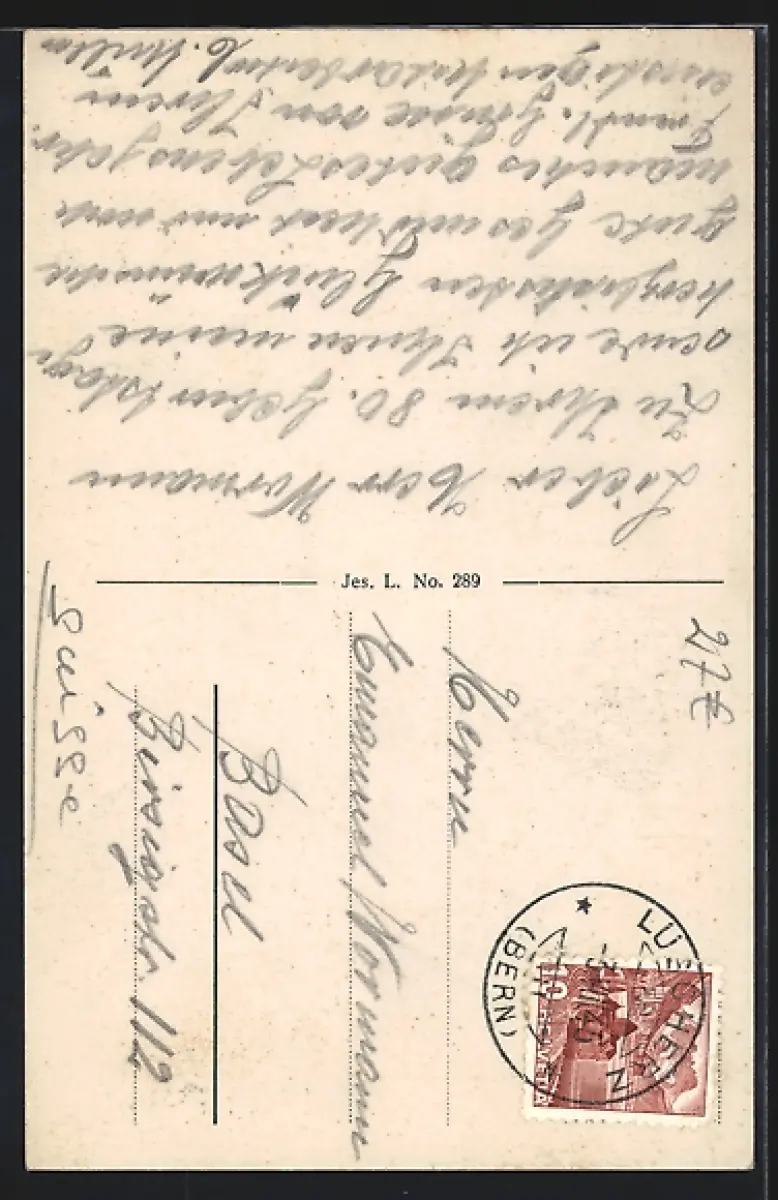 Lieber Herr Wormann
Zu Ihrem 80. Geburtstage
sende ich Ihnen meine
herzlichsten Glückwünsche
gute Gesundheit und noch
manches gutes Lebensjahr.
Freundl. Grüsse von Ihrem
Jes. L. No. 289
27 €
Herrn
Emanuel Wormann
Basel
Birsigstr 112
Suisse
LÜSCHERZ
(BERN)
HELVETIA
10